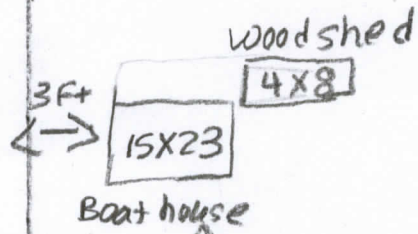 woodshed
4X8
3Ft
15X23
Boathouse